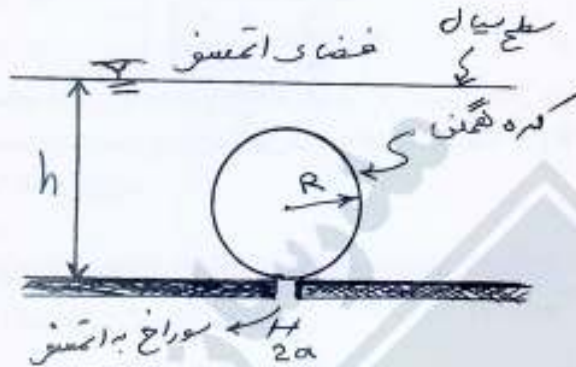 سطح سیال
فضای اتمسفر
کره همگن
h
R
سوراخ به اتمسفر
2a